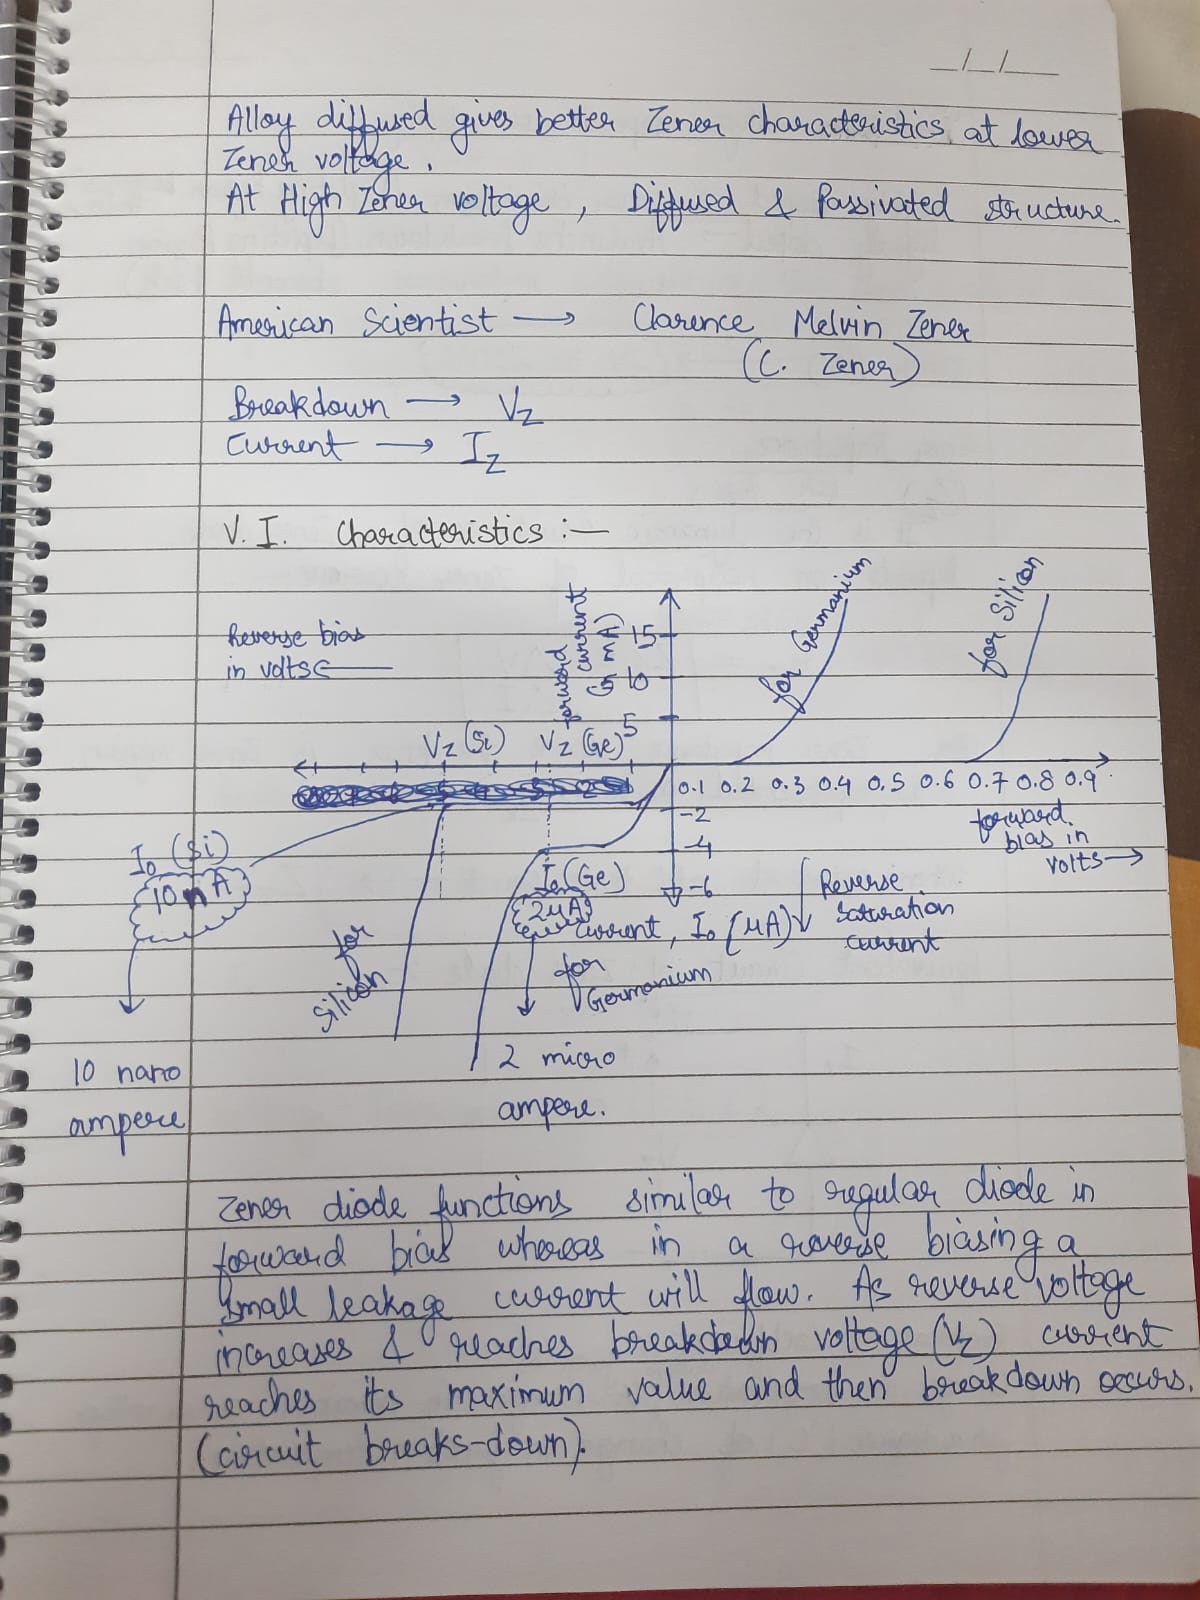 _/_/__
Alloy diffused gives better Zener characteristics at lower
Zener voltage.
At High Zener voltage, Diffused & Passivated structure.
American Scientist → Clarence Melvin Zener
(C. Zener)
Breakdown → Vz
Current → Iz
V. I. Characteristics :—
Reverse bias
in volts ←
forward
current
(in mA)
15
10
5
for Germanium
for Silicon
Vz (Si) Vz (Ge)
0.1 0.2 0.3 0.4 0.5 0.6 0.7 0.8 0.9
forward
bias in
volts →
-2
-4
-6
I₀ (Si)
10 nA
I₀ (Ge)
2μA
Current, I₀ (μA)
Reverse
Saturation
current
for
Silicon
for
Germanium
10 nano
ampere
2 micro
ampere.
Zener diode functions similar to regular diode in
forward bias whereas in a reverse biasing a
small leakage current will flow. As reverse voltage
increases & reaches breakdown voltage (Vz) current
reaches its maximum value and then breakdown occurs.
(circuit breaks-down).